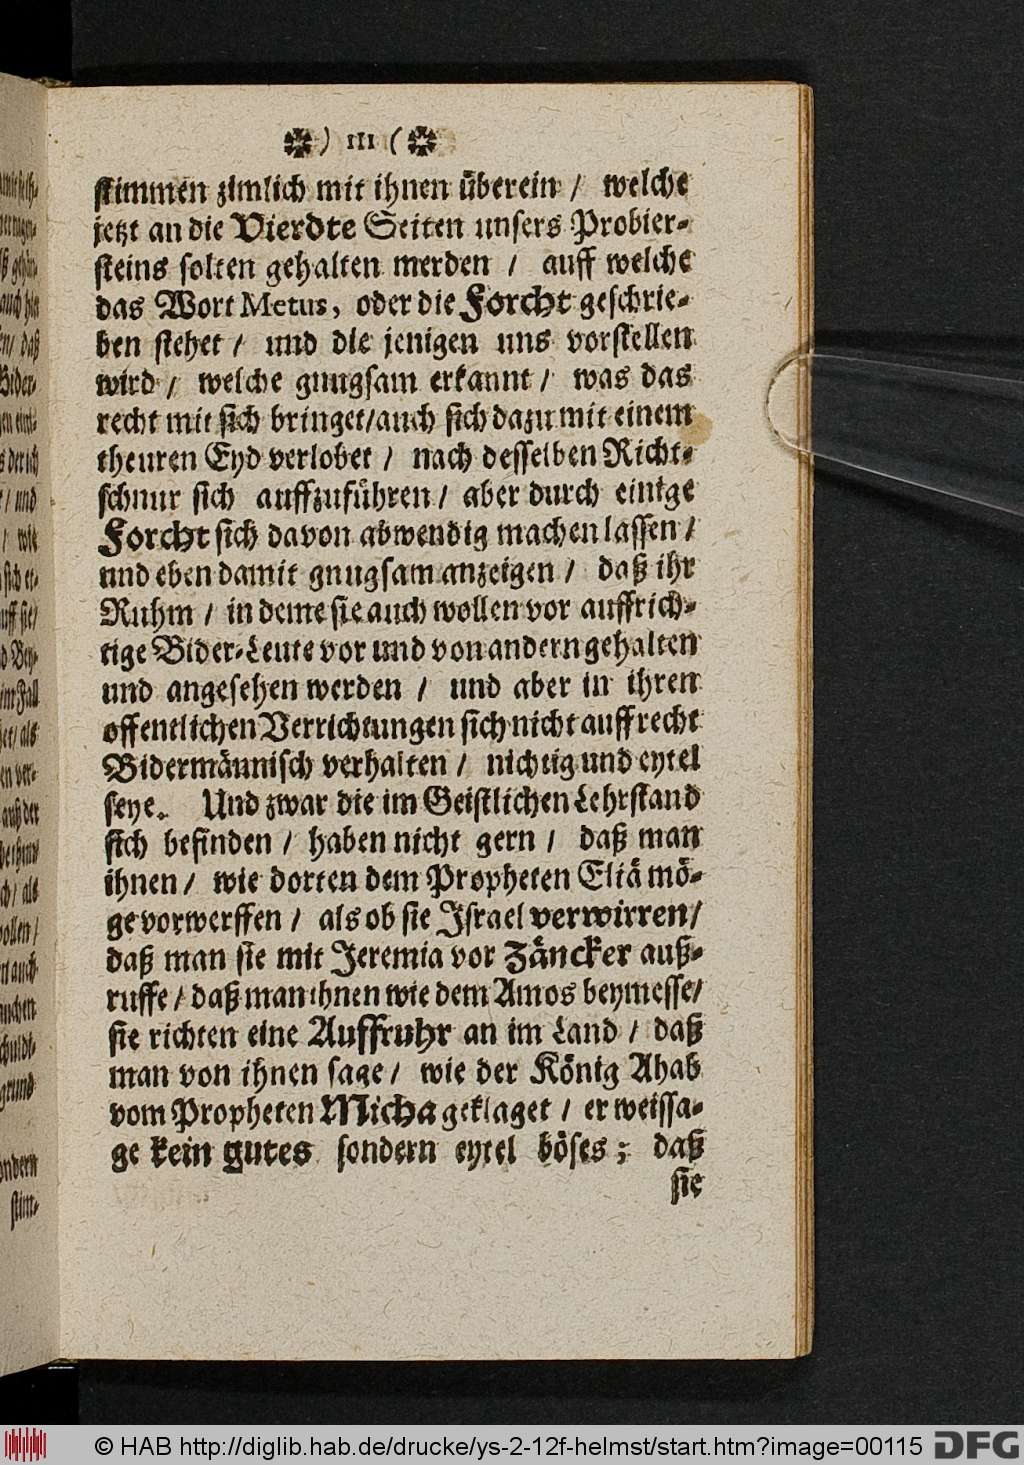 ) III (
stimmen zimlich mit ihnen überein / welche
jetzt an die Vierdte Seiten unsers Probier-
steins solten gehalten werden / auff welche
das Wort Metus, oder die Forcht geschrie-
ben stehet / und die jenigen uns vorstellen
wird / welche gnugsam erkannt / was das
recht mit sich bringet / auch sich dazu mit einem
theuren Eyd verlobet / nach desselben Richt-
schnur sich auffzuführen / aber durch einige
Forcht sich davon abwendig machen lassen /
und eben damit gnugsam anzeigen / daß ihr
Ruhm / in deme sie auch wollen vor auffrich-
tige Bider-Leute vor und von andern gehalten
und angesehen werden / und aber in ihren
offentlichen Verrichtungen sich nicht auffrecht
Bidermännisch verhalten / nichtig und eytel
seye. Und zwar die im Geistlichen Lehrstand
sich befinden / haben nicht gern / daß man
ihnen / wie dorten dem Propheten Eliä mö-
ge vorwerffen / als ob sie Israel verwirren /
daß man sie mit Jeremia vor Zäncker auß-
ruffe / daß man ihnen wie dem Amos beymesse /
sie richten eine Auffruhr an im Land / daß
man von ihnen sage / wie der König Ahab
vom Propheten Micha geklaget / er weissa-
ge kein gutes sondern eytel böses ; daß
sie
© HAB http://diglib.hab.de/drucke/ys-2-12f-helmst/start.htm?image=00115
DFG